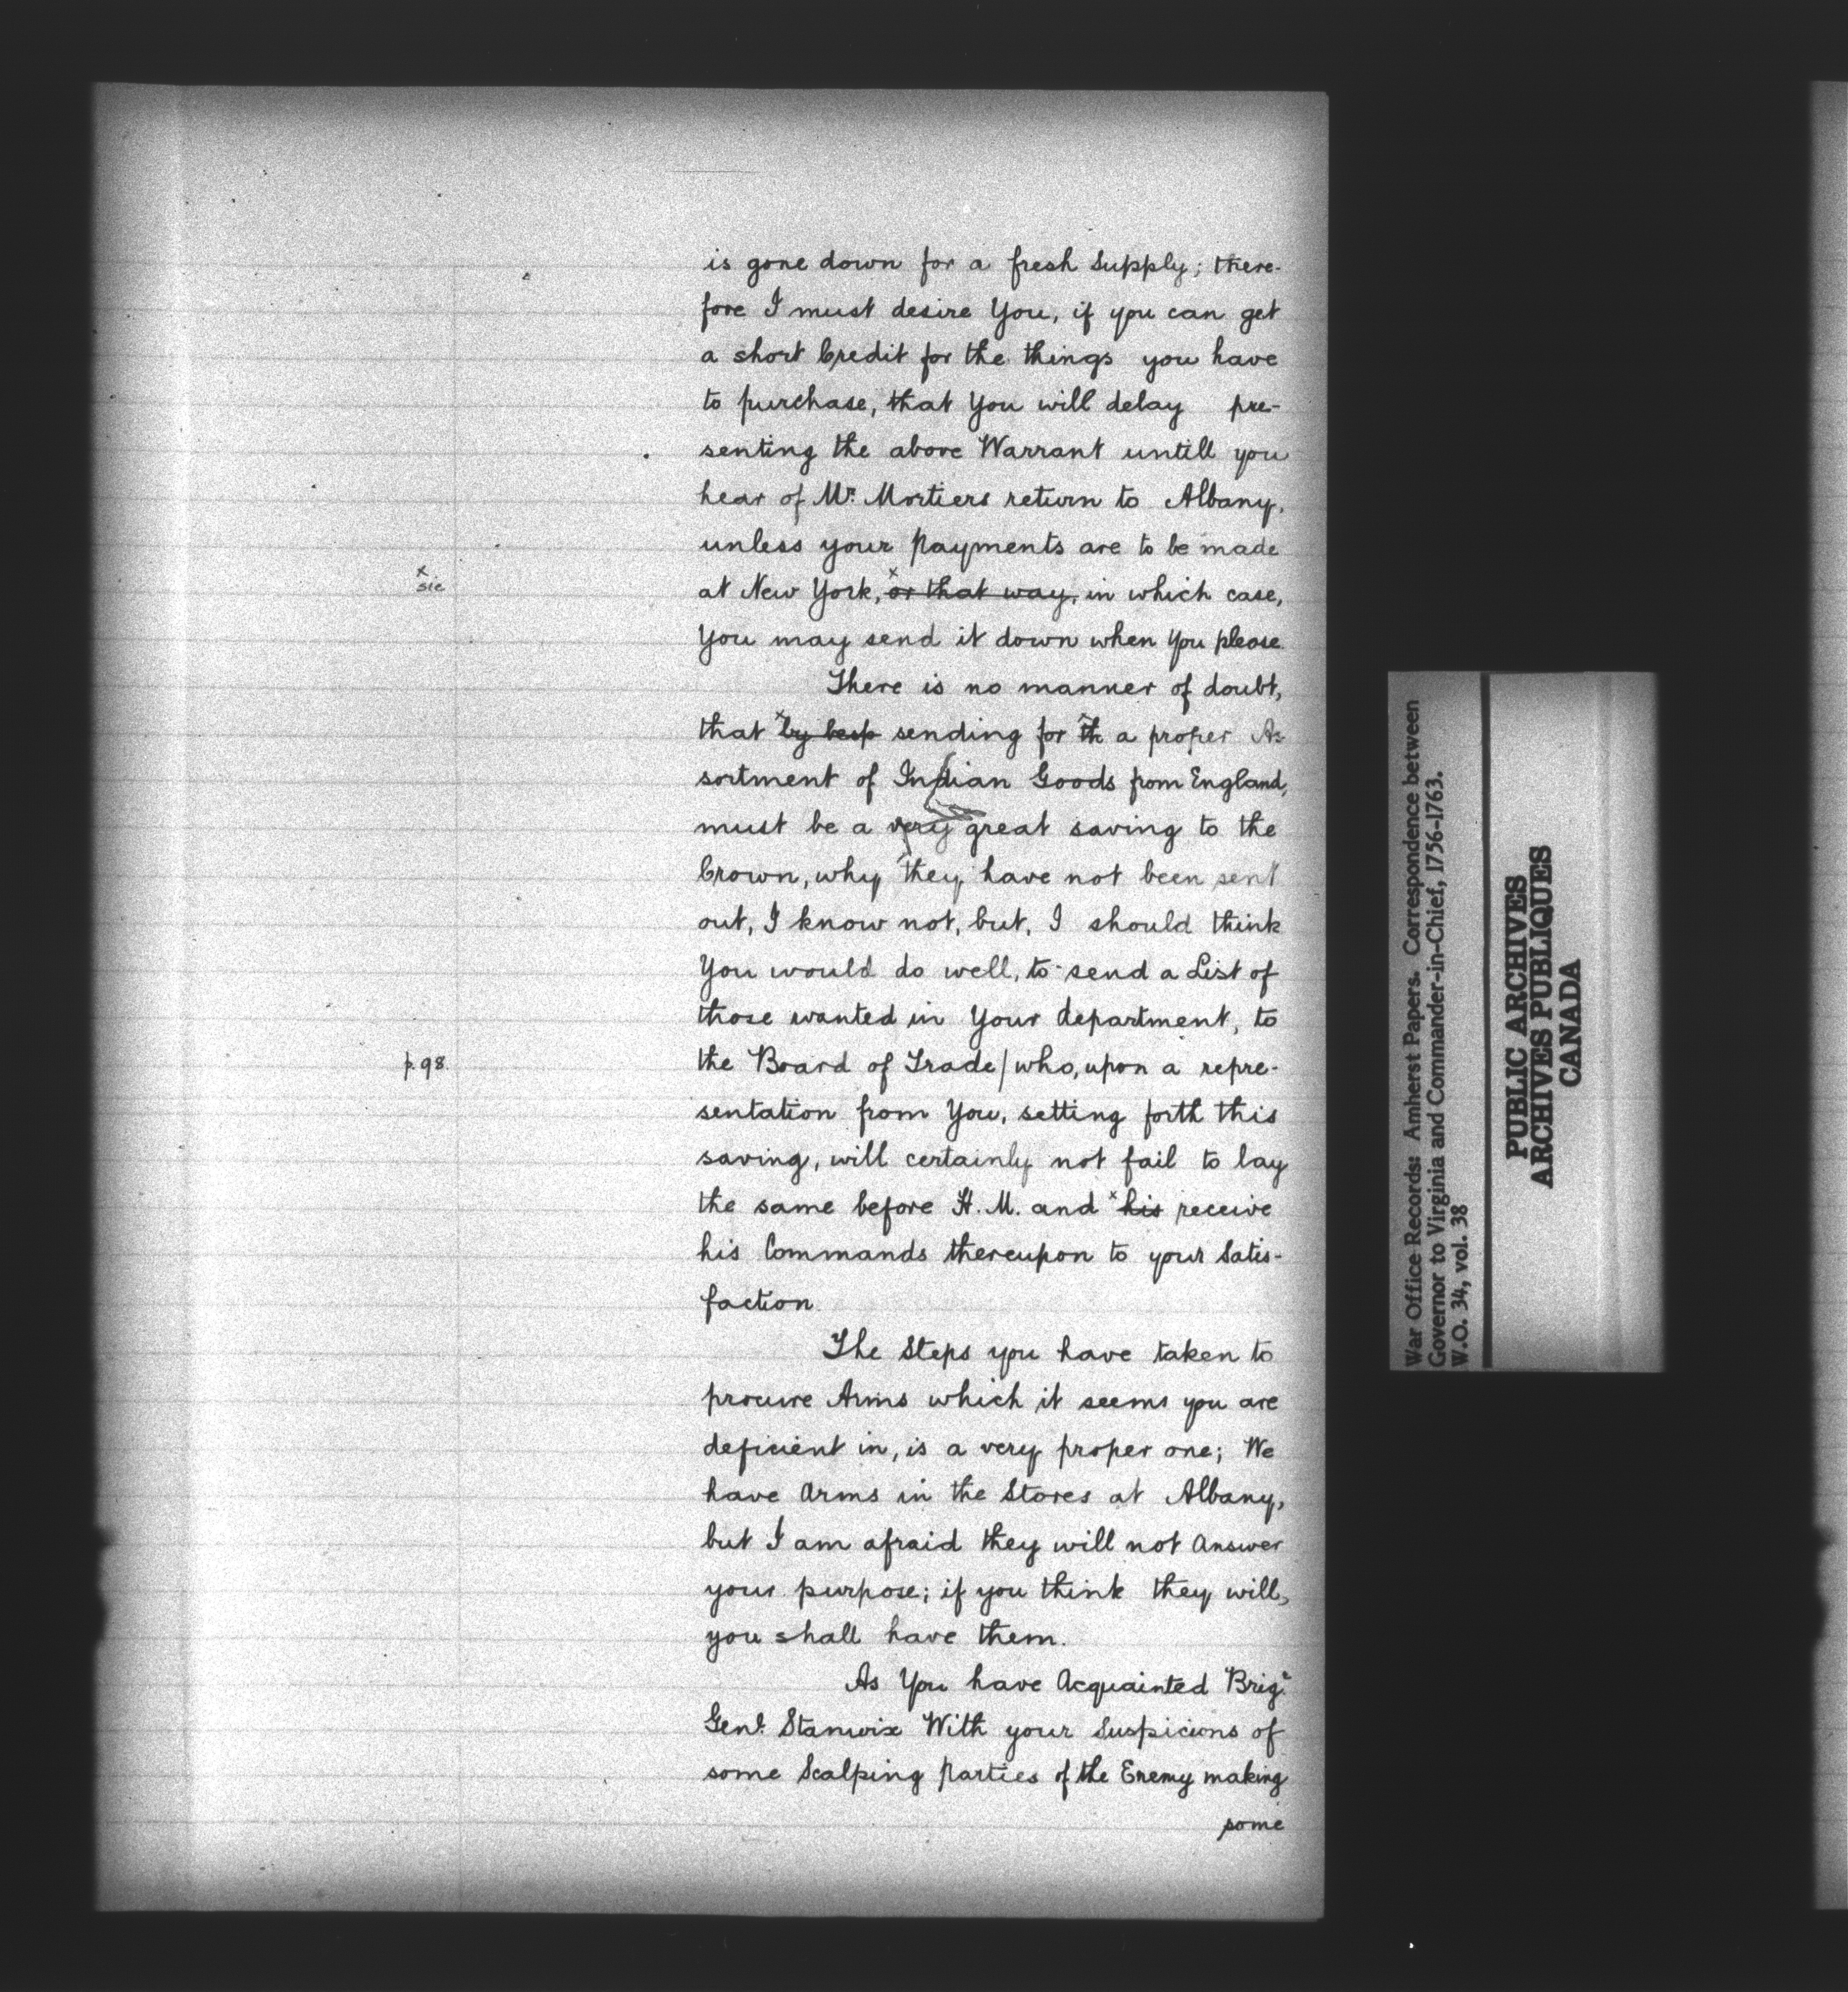 is gone down for a fresh Supply; there-
fore I must desire You, if you can get
a short Credit for the things you have
to purchase, that You will delay pre-
senting the above Warrant untill you
hear of Mr. Mortiers return to Albany,
unless your payments are to be made
x
sic
at New York, x or that way, in which case,
You may send it down when You please
There is no manner of doubt,
that x by besp sending for x th a proper As-
sortment of Indian Goods from England,
must be a very great saving to the
Crown, why they have not been sent
out, I know not, but, I should think
You would do well, to send a List of
those wanted in Your department, to
p. 98.
the Board of Trade/who, upon a repre-
sentation from You, setting forth this
saving, will certainly not fail to lay
the same before H. M. and x his receive
his Commands thereupon to your Satis-
faction
The Steps you have taken to
procure Arms which it seems you are
deficient in, is a very proper one; We
have Arms in the Stores at Albany,
but I am afraid they will not Answer
your purpose; if you think they will,
you shall have them.
As You have Acquainted Brigr.
Genl. Stanwix With your Suspicions of
some Scalping parties of the Enemy making
some
War Office Records: Amherst Papers. Correspondence between
Governor to Virginia and Commander-in-Chief, 1756-1763.
W.O. 34, vol. 38
PUBLIC ARCHIVES
ARCHIVES PUBLIQUES
CANADA